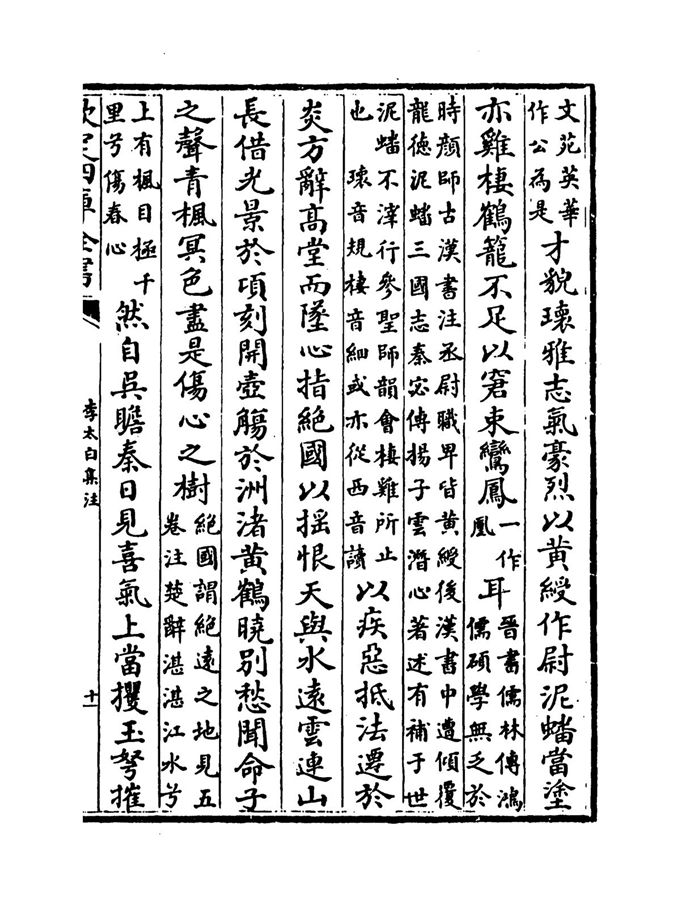 文苑英華
作公為是
才貌瓌雅志氣豪烈以黄綬作尉泥蟠當塗
亦雞棲鶴籠不足以窘束鸞鳳
一作
凰
耳
晉書儒林傳鴻
儒碩學無乏於
時顔師古漢書注丞尉職卑皆黄綬後漢書中遭傾覆
龍徳泥蟠三國志秦宓傳揚子雲潛心著述有補于世
泥蟠不滓行參聖師韻會棲雞所止
也 瓌音規棲音細或亦從西音讀
以疾惡抵法遷於
炎方辭高堂而墜心指絶國以揺恨天與水遠雲連山
長借光景於項刻開壺觴於洲渚黄鶴曉別愁聞命子
之聲青楓冥色盡是傷心之樹
絶國謂絶遠之地見五
卷注楚辭湛湛江水兮
上有楓目極千
里兮傷春心
然自吳瞻秦日見喜氣上當攫玉弩摧
欽定四庫全書
李太白集注
十